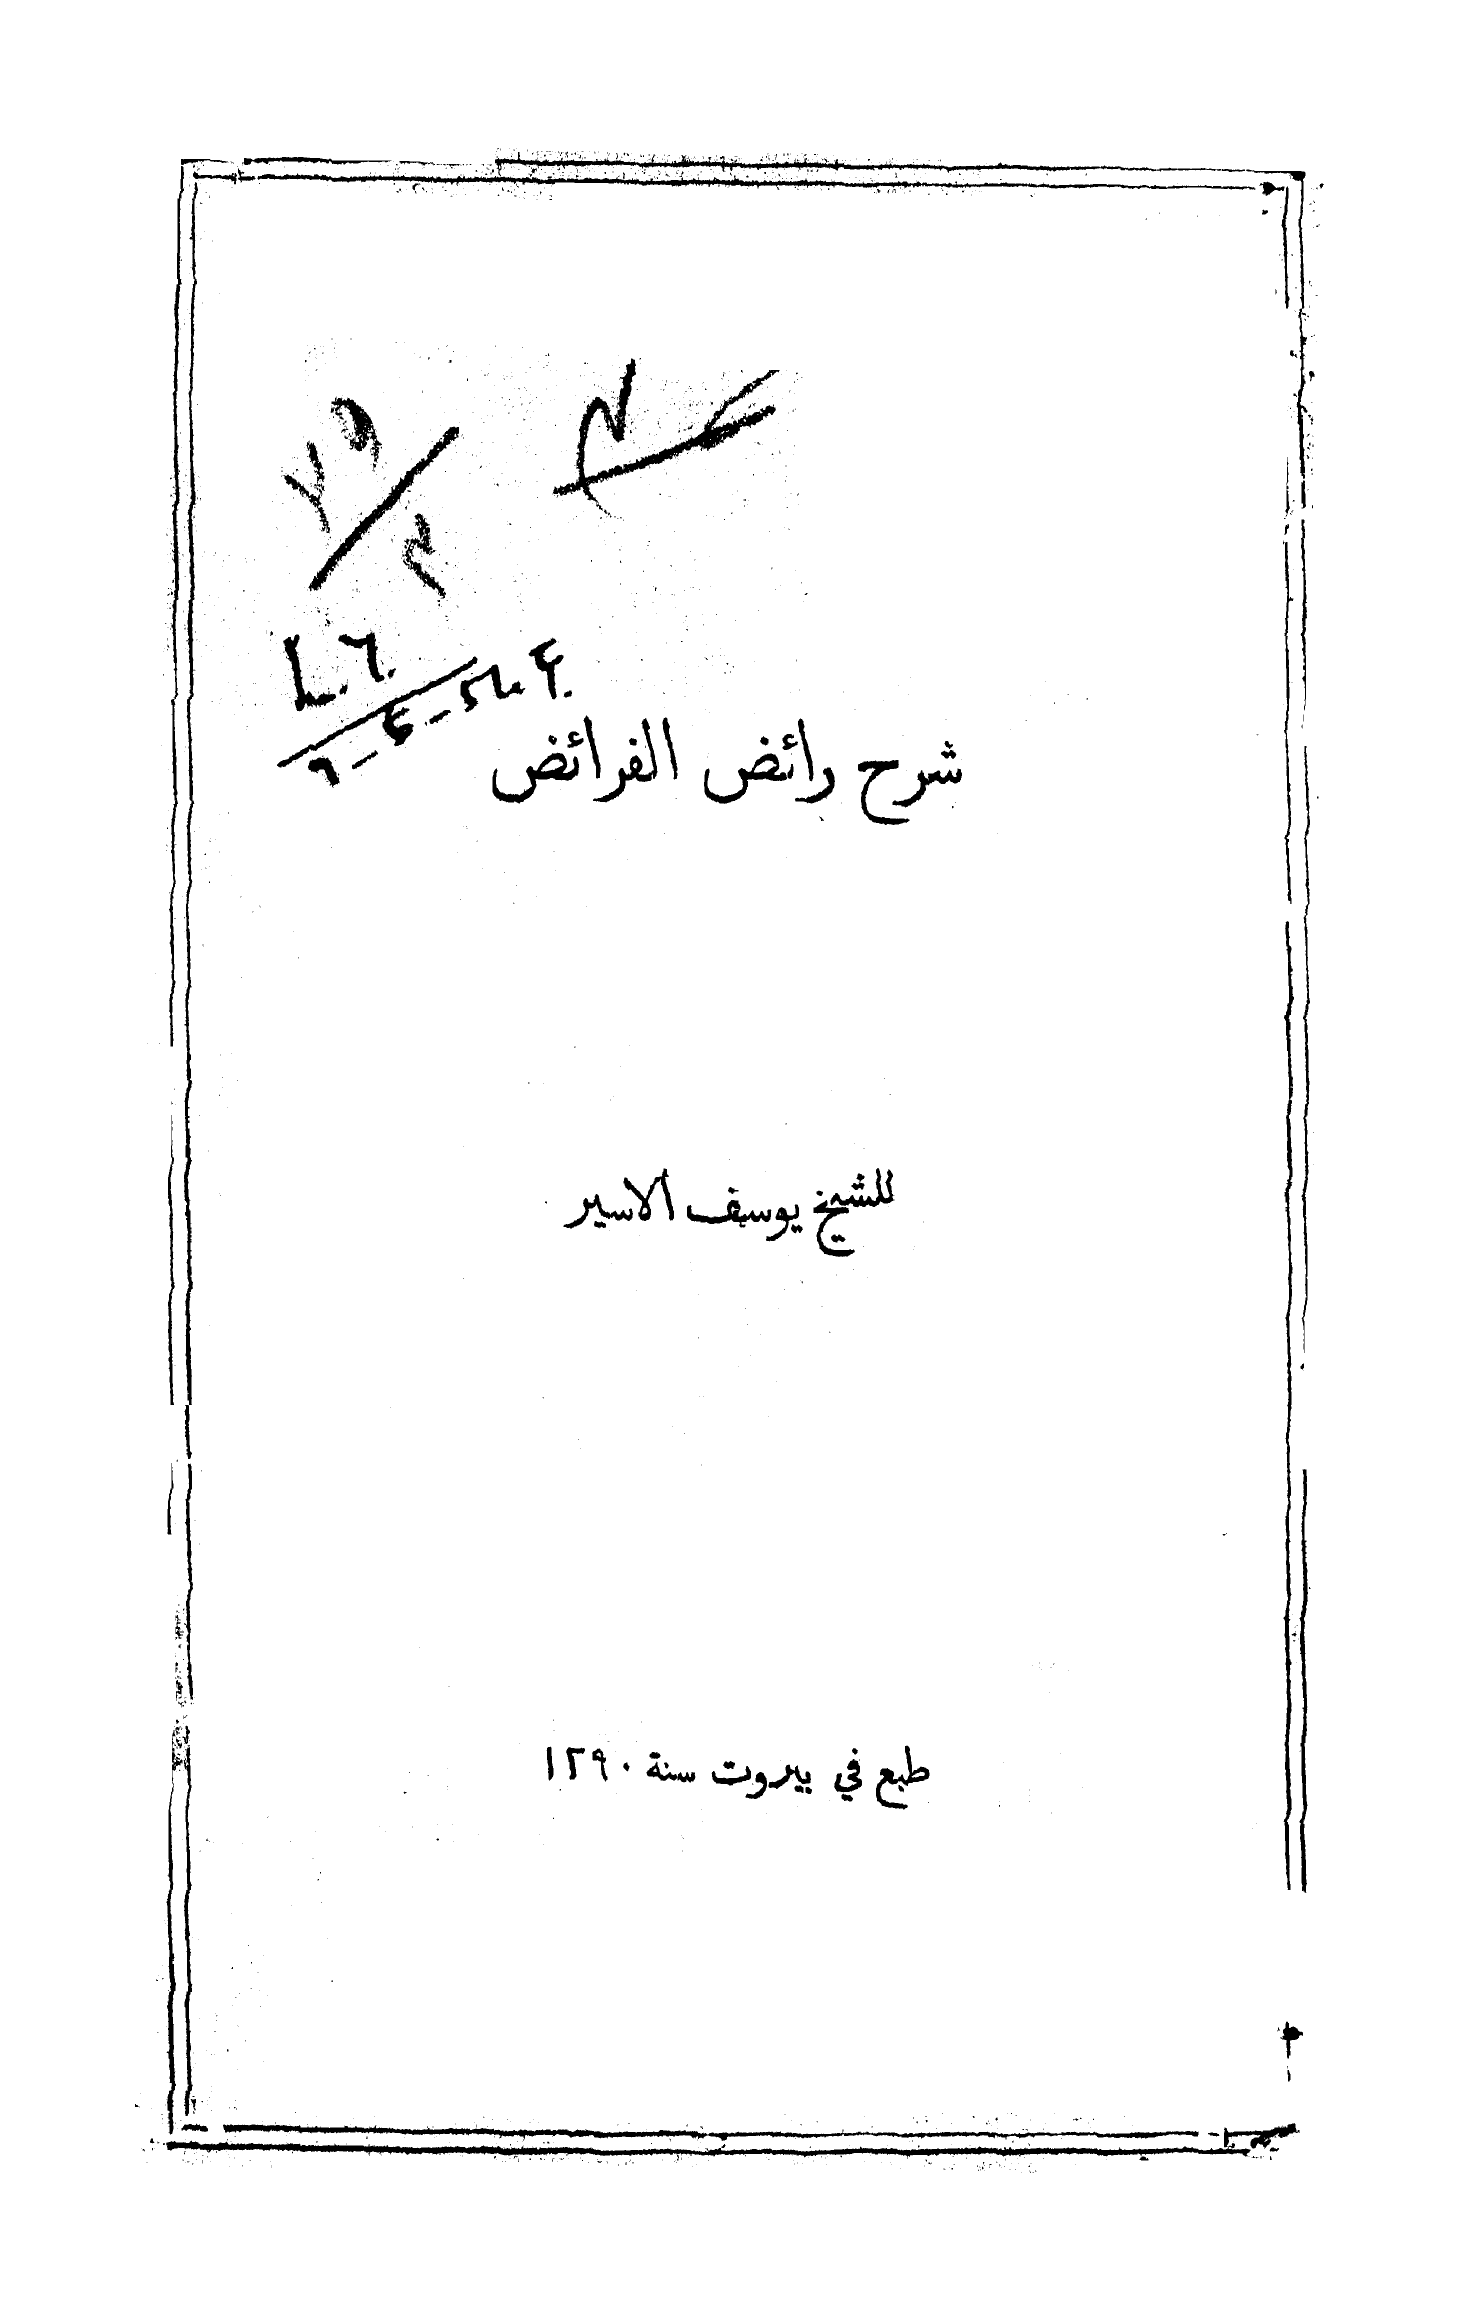 شرح رائض الفرائض
للشيخ يوسف الاسير
طبع في بيروت سنة ١٢٩٠